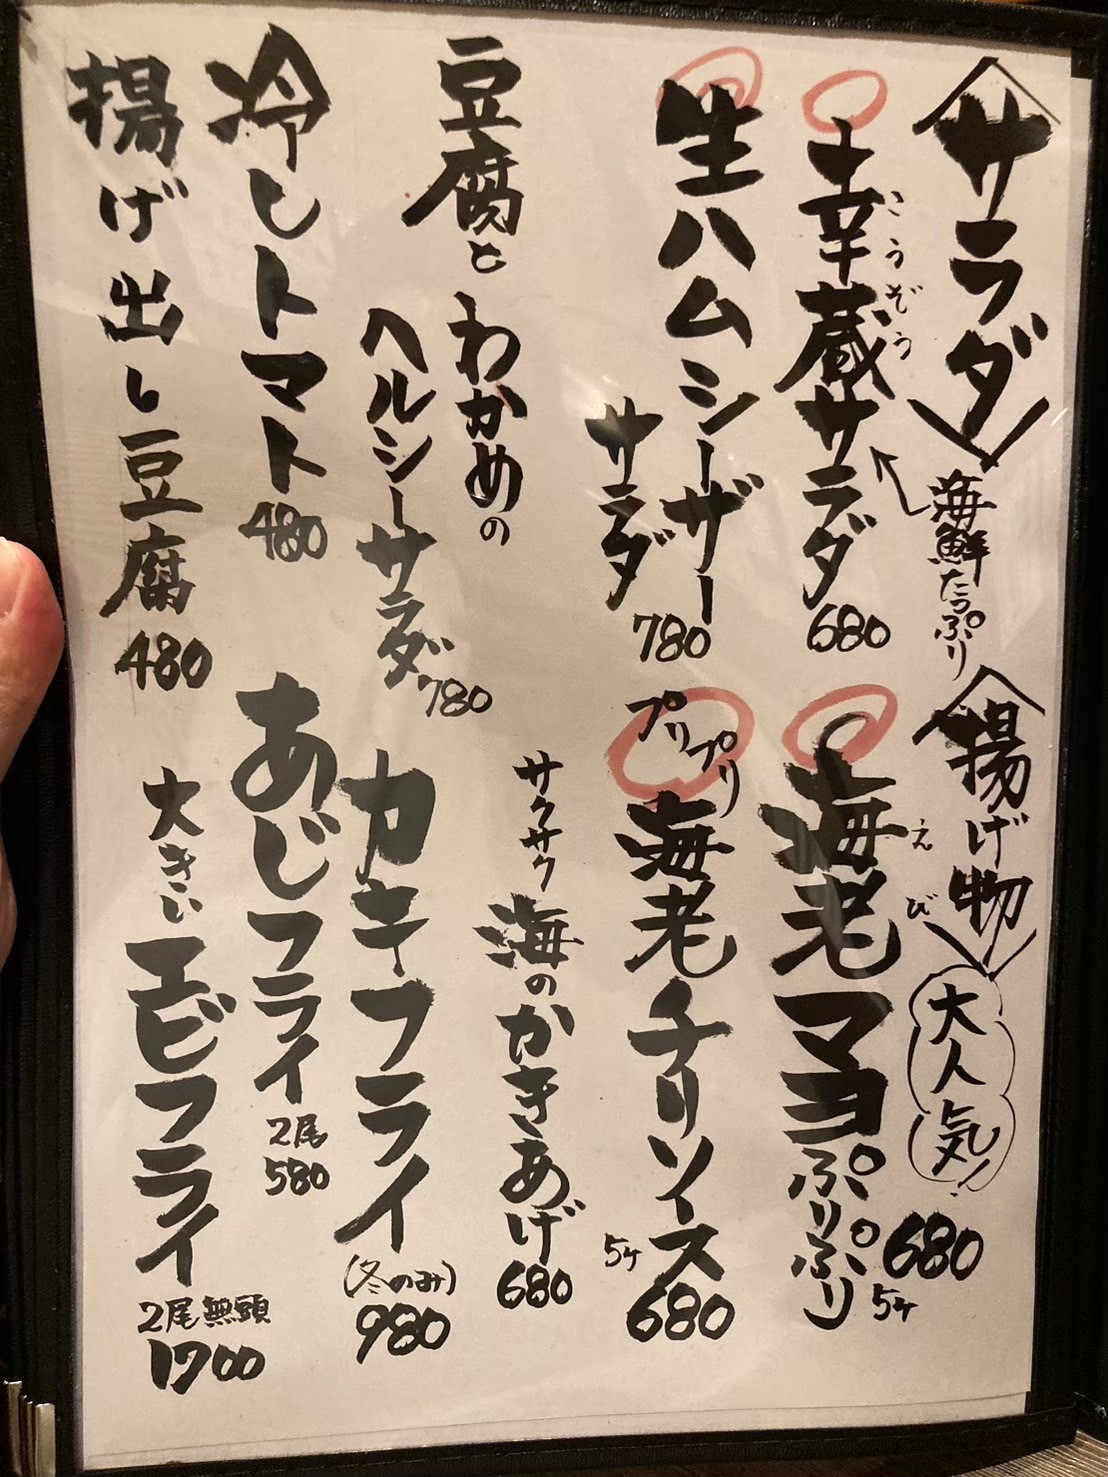 サラダ
海鮮たっぷり
こうぞう
幸蔵サラダ 680
生ハムシーザー
サラダ 780
豆腐とわかめの
ヘルシーサラダ 780
冷しトマト 480
揚げ出し豆腐 480
揚げ物
大人気!
えび
海老マヨぷりぷり 5ケ 680
プリプリ
海老チリソース 5ケ 680
サクサク 海のかきあげ 680
カキフライ (冬のみ) 980
あじフライ 2尾 580
大きい エビフライ 2尾 無頭 1700